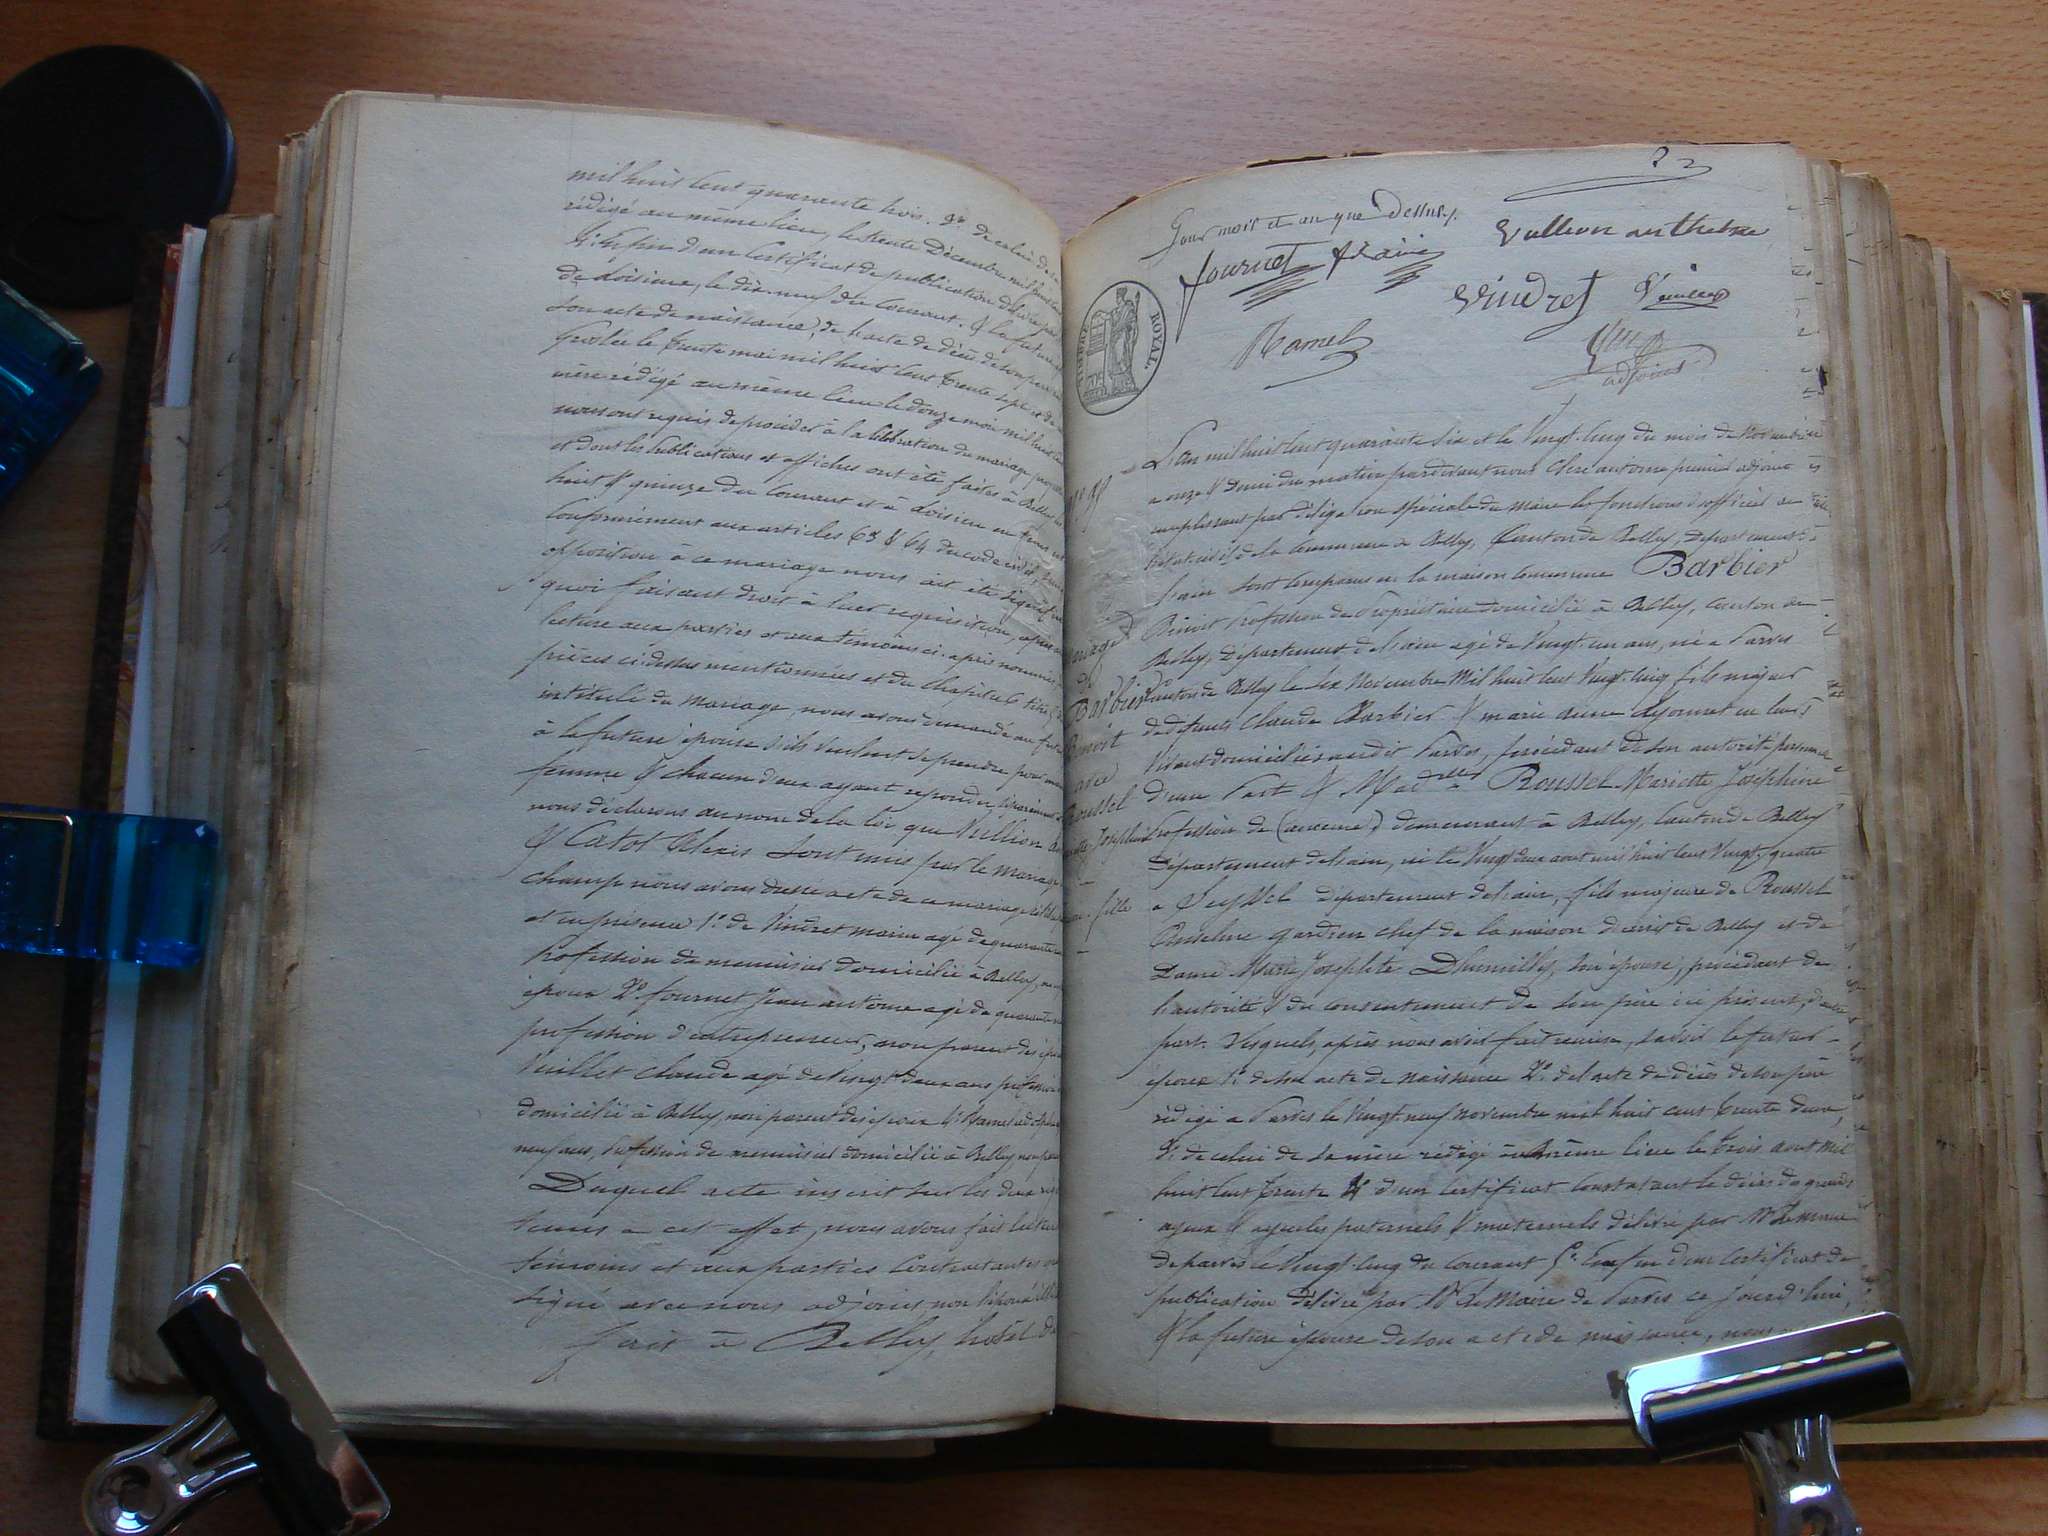 mil huit cent quarante trois. 3° de celui de sa
rédigé au même lieu, le trente Décembre mil huit cent
4° Enfin d'un certificat de publication délivré par
de Loisieux, le dix-neuf du courant. & la future
son acte de naissance, de l'acte de décès de son père
le trente mai mil huit cent trente sept et de
mère rédigé au même lieu le douze mai mil huit cent
nous ont requis de procéder à la célébration du mariage projeté
et dont les publications et affiches ont été faites à Belley les
huit & quinze du courant et à Loisieu en
Conformément aux articles 63 & 64 du code civil,
opposition à ce mariage nous ait été signifiée
quoi faisant droit à leur réquisition, après
lecture aux parties et aux témoins ci-après nommés,
pièces ci-dessus mentionnées et du chapitre 6 titre
intitulé du Mariage, nous avons demandé au futur
à la future épouse s'ils veulent se prendre pour mari
femme & chacun d'eux ayant répondu
nous déclarons au nom de la loi que Vullion
& Catot Alexis sont unis par le mariage
champ nous avons dressé acte de ce mariage
et en présence 1° de Vindret marin agé de quarante
Profession de menuisier domicilié à Belley,
époux 2° fournet Jean antoine agé de quarante
profession d'entrepreneur, non parent des époux
Vuillet claude agé de Vingt deux ans profession
domicilié à Belley, non parent des époux 4° Ramel
neuf ans, Profession de menuisier domicilié à Belley, non parent
Duquel acte inscrit sur les deux
tenus à cet effet, nous avons fait lecture
témoins et aux parties Contractantes
signé avec nous adjoint, non l'épouse
fait à Belley, hôtel de
Jour mois et an que dessus.
fournet
Vullion anthelme
Vindret Vuillet
Ramel
adjoint
TIMBRE ROYAL.
L'an mil huit cent quarante six et le Vingt-cinq du mois de Novembre
a onze & demi du matin pardevant nous antoine premier adjoint
remplissant par délégation spéciale du maire les fonctions d'officier de
l'état civil de la Commune de Belley, Canton de Belley, Département
l'ain sont comparus en la maison commune Barbier
Benoit Profession de Propriétaire domicilié à Belley, canton de
Belley, Département de l'ain agé de Vingt-un ans, né à Parves
Canton de Belley le six Novembre Mil huit cent Vingt-cinq fils majeur
de défunts Claude Barbier & marie anne en leurs
Vivant domiciliés audit Parves, procédant de son autorité personnelle
d'une Part & Mad.elle Roussel Mariette Joséphine
Profession de (aucune) demeurant à Belley, Canton de Belley
Département de l'ain, né le Vingt deux aout mil huit cent Vingt-quatre
a Seyssel département de l'ain, fille majeure de Roussel
Anselme gardien chef de la maison d'arrêt de Belley et de
Dame Marie Josephte Dhumilly, son épouse, procédant de
l'autorité & du consentement de son père ici présent, d'autre
part. Lesquels, après nous avoir fait remise, savoir le futur
époux 1° de son acte de naissance 2° de l'acte de décès de son père
rédigé a Parves le Vingt neuf novembre mil huit cent trente deux,
3° de celui de sa mère rédigé au même lieu le trois aout mil
huit cent trente 4° d'un Certificat constatant le décès des grands
ayeux & ayeules paternels & maternels délivré par Mr Le maire
de parves le Vingt-cinq du courant 5° Enfin d'un Certificat de
publication délivré par Mr Le Maire de Parves ce jourd'hui,
& la future épouse de son acte de naissance, nous
Mariage
de
Barbier
Benoit
avec
Roussel
Joséphine
fille